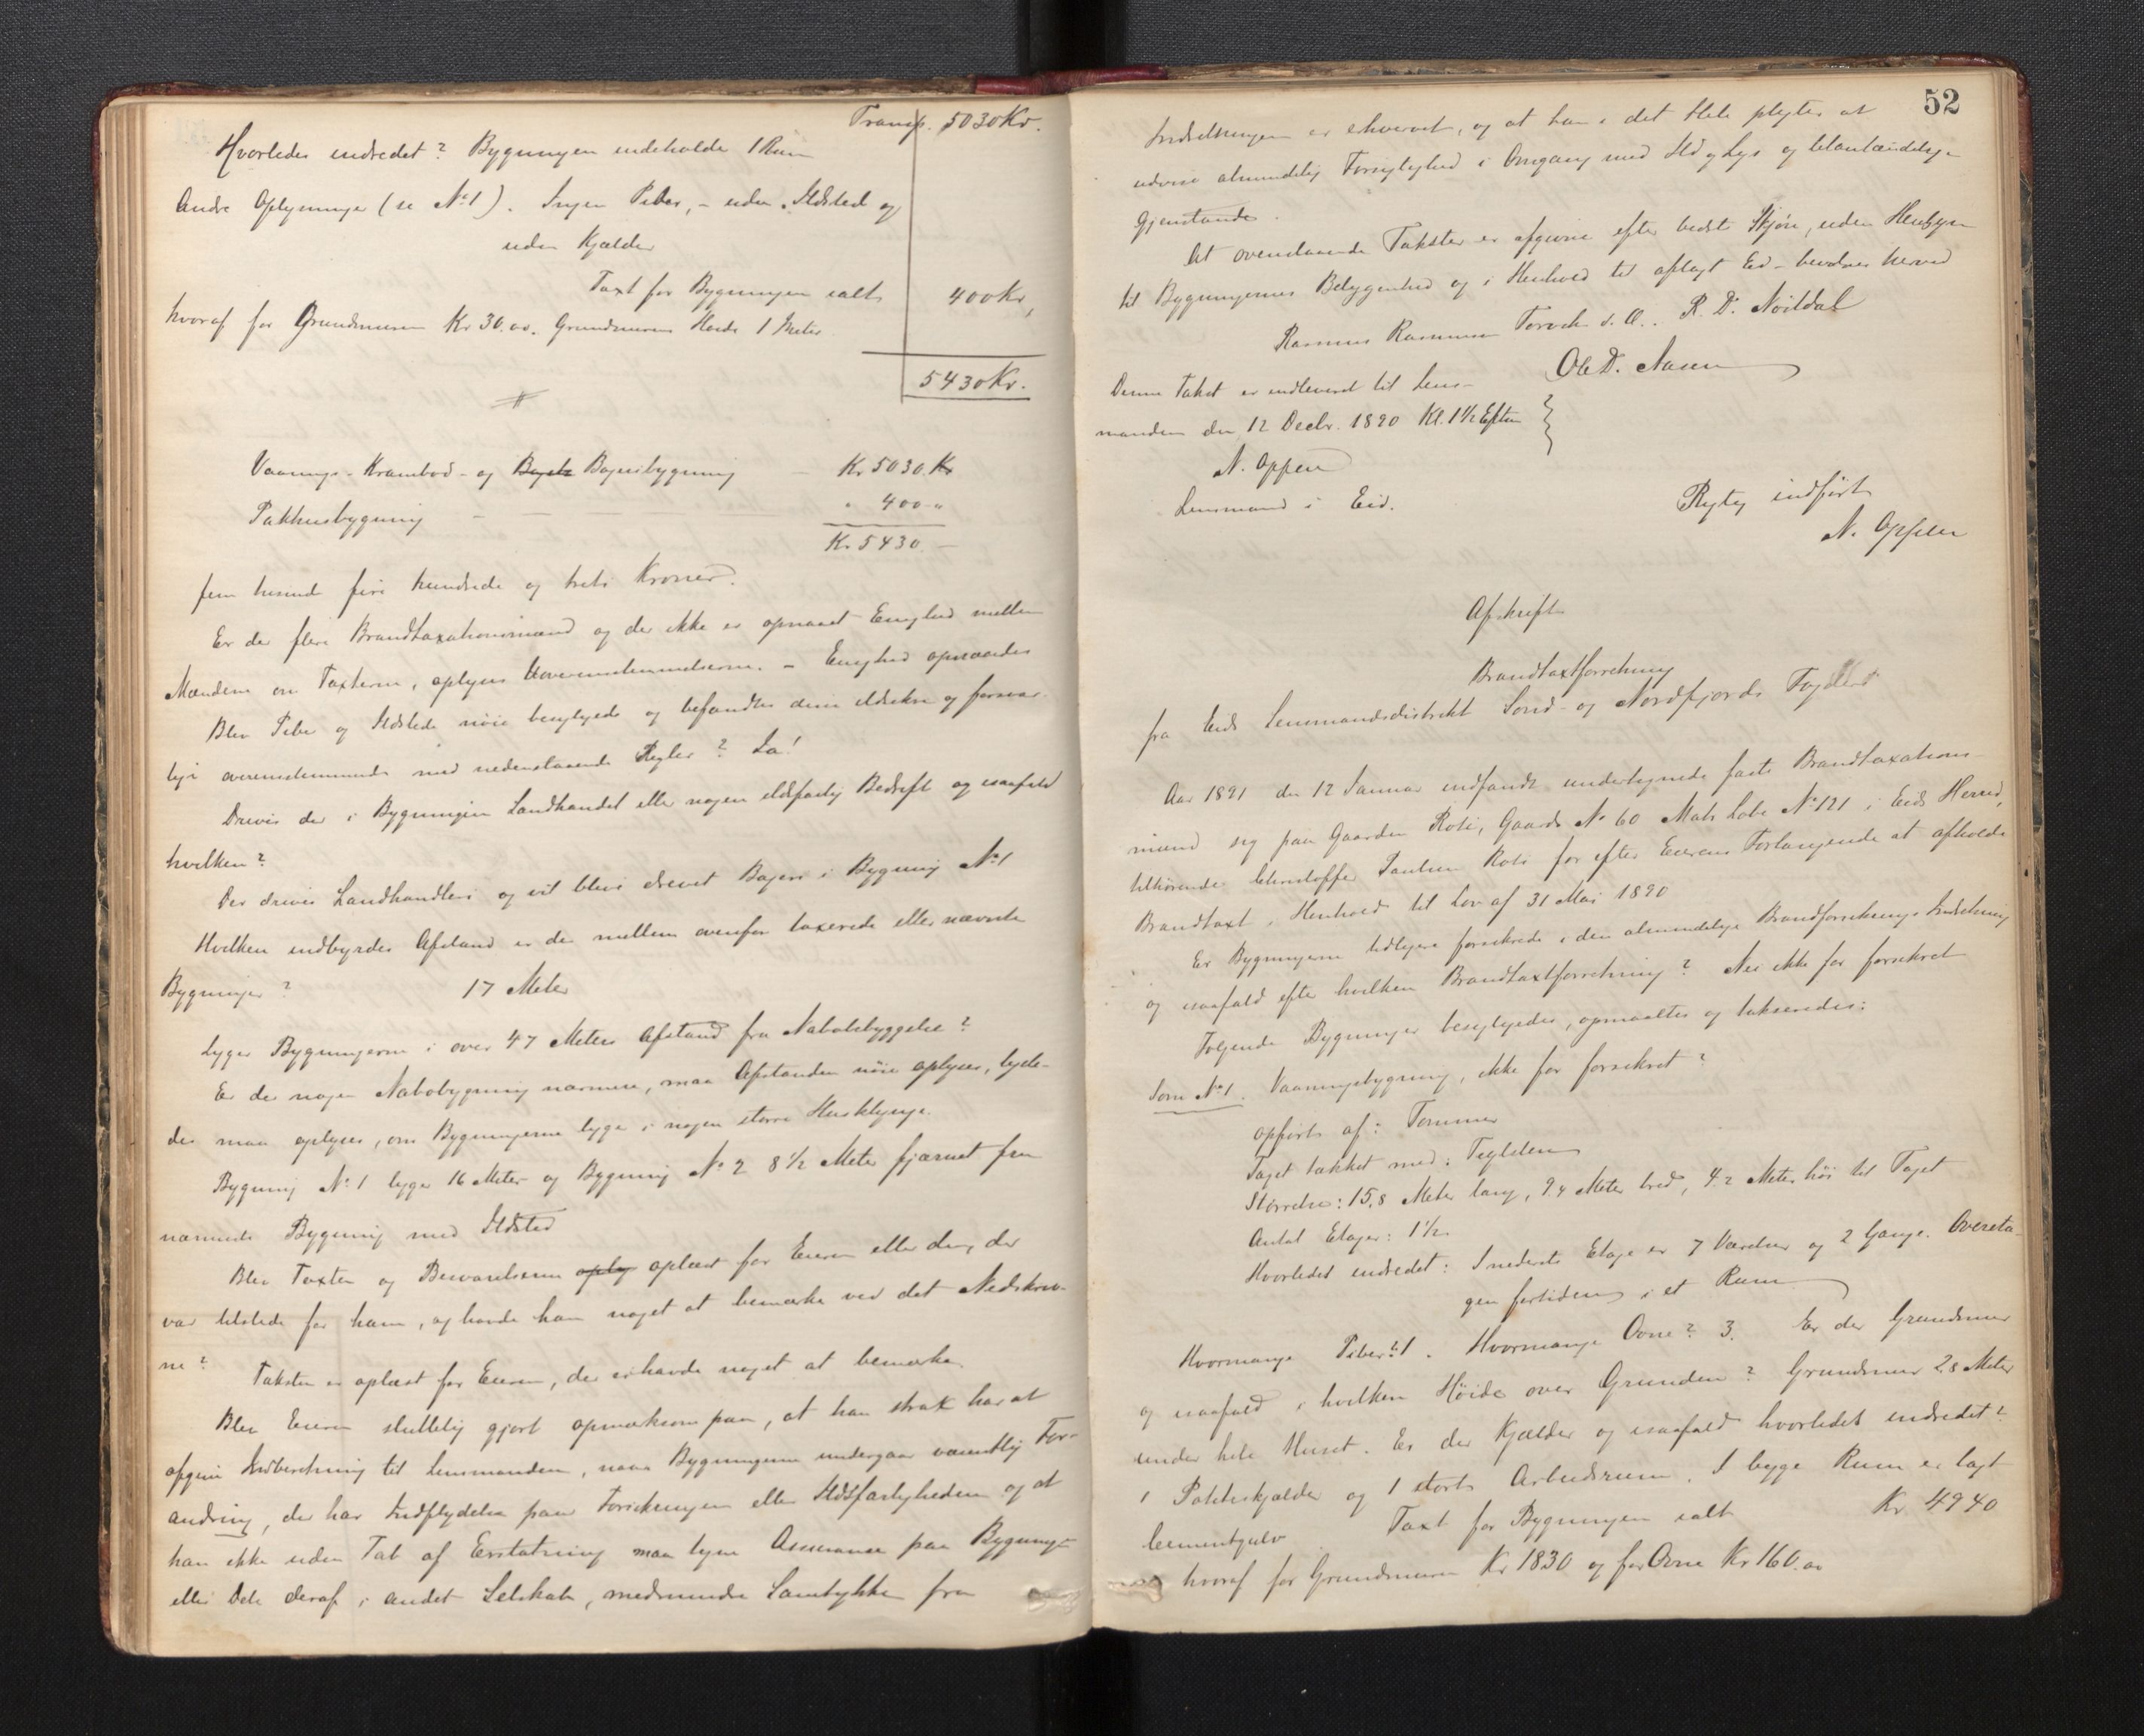 Transp. 5030 Kr.
Hvorledes indredet? Bygningen indeholde 1 Rum
Andre Oplysninger (se No 1). Ingen Piber, - uden Ildsted og
uden Kjælder
Taxt for Bygningen ialt 400 Kr,
hvoraf for Grundmuren Kr 30.00. Grundmurens Høide 1 Meter
5430 Kr.
Vaanings- Krambod- og Bageribygning Kr 5030. Kr
Pakhusbygning - - " 400 "
Kr 5430 -
fem tusind fire hundrede og treti Kroner.
Er der flere Brandtaxationsmænd og der ikke er opnaaet Enighed mellem
Mændene om Taxterne, oplyses Uoverensstemmelserne. - Enighed opnaaedes
Blev Piber og Ildstede nøie besigtigede og befandtes disse ildsikre og forsvar-
lige overensstemmende med nedenstaaende Regler? Ja!
Drives der i Bygningen Landhandel eller nogen ildsfarlig Bedrift og isaafald
hvilken?
Der drives Landhandleri og vil blive drevet Bageri i Bygning No 1
Hvilken indbyrdes Afstand er der mellem ovenfor taxerede eller nævnte
Bygninger? 17 Meter
Ligger Bygningerne i over 47 Meters Afstand fra Nabobebyggelse?
Er der nogen Nabobygning nærmere, maa Afstanden nøie oplyses, lige-
des maa oplyses, om Bygningerne ligge i nogen større Husklynge.
Bygning No 1 ligger 16 Meter og Bygning No 2 8 1/2 Meter fjærnet fra
nærmeste Bygning med Ildsted
Blev Taxten og Besvarelserne oply oplæst for Eieren eller den, der
var tilstede for ham, og havde han noget at bemærke ved det Nedskrev-
ne? Taksten er oplæst for Eieren, der ei havde noget at bemærke.
Blev Eieren sluttelig gjort opmærksom paa, at han strax har at
afgive Indberetning til Lensmanden, naar Bygningerne undergaar væsentlig For-
andring, der har Indflydelse paa Forsikringen eller Ildsfarligheden og at
han ikke uden Tab af Erstatning maa tegne Assurance paa Bygninge
eller Dele deraf i andet Selskab, medmindre Samtykke fra
52
Indretningen er erhvervet, og at han i det Hele pligter at
udvise almindelig Forsigtighed i Omgang med Ild og Lys og letantændelige
Gjenstande.
At ovenstaaende Takster er afgivne efter bedste Skjøn, uden Hensyn
til Bygningernes Beliggenhed og i Henhold til aflagt Ed - bevidnes herved
Rasmus Rasmussen Torvik s. A. R. D. Nøstdal
Ole D. Aasen
Denne Takst er indleveret til Lens-
manden den 12 Decbr. 1890 Kl. 1 1/2 Efterm
N. Oppen
Lensmand i Eid.
Rigtig indført
N. Oppen
Afskrift
Brandtaxtforretning
fra Eids Lensmandsdistrikt Sønd- og Nordfjords Fogderi
Aar 1891 den 12 Januar indfandt undertegnede faste Brandtaxations-
mænd sig paa Gaarden Roti, Gaards No 60 Matr Løbe No 121 i Eids Herred,
tilhørende Christoffer Paulsen Roti for efter Eierens Forlangende at afholde
Brandtaxt i Henhold til Lov af 31 Mai 1890
Er Bygningerne tidligere forsikrede i den almindelige Brandforsikrings Indretning
og isaafald efter hvilken Brandtaxtforretning? Nei ikke før forsikret
Følgende Bygninger besigtigedes, opmaaltes og takseredes:
Som No 1. Vaaningsbygning, ikke før forsikret?
opført af: Tømmer
Taget tækket med: Teglsten
Størrelse: 15,8 Meter lang, 9.4 Meter bred, 4.2 Meter høi til Taget
Antal Etager: 1 1/2.
Hvorledes indredet: I nederste Etage er 7 Værelser og 2 Gange. Overeta-
gen fortiden i et Rum
Hvormange Piber? 1. Hvormange Ovne? 3. Er der Grundmur
og isaafald i hvilken Høide over Grunden? Grundmur 2.8 Meter
under hele Huset. Er der Kjælder og isaafald hvorledes indredet?
1 Potetkjælder og 1 stort Arbeidsrum. I begge Rum er lagt
Cementgulv Taxt for Bygningen ialt Kr. 4940
hvoraf for Grundmuren Kr 1830 og for Ovne Kr 160.00